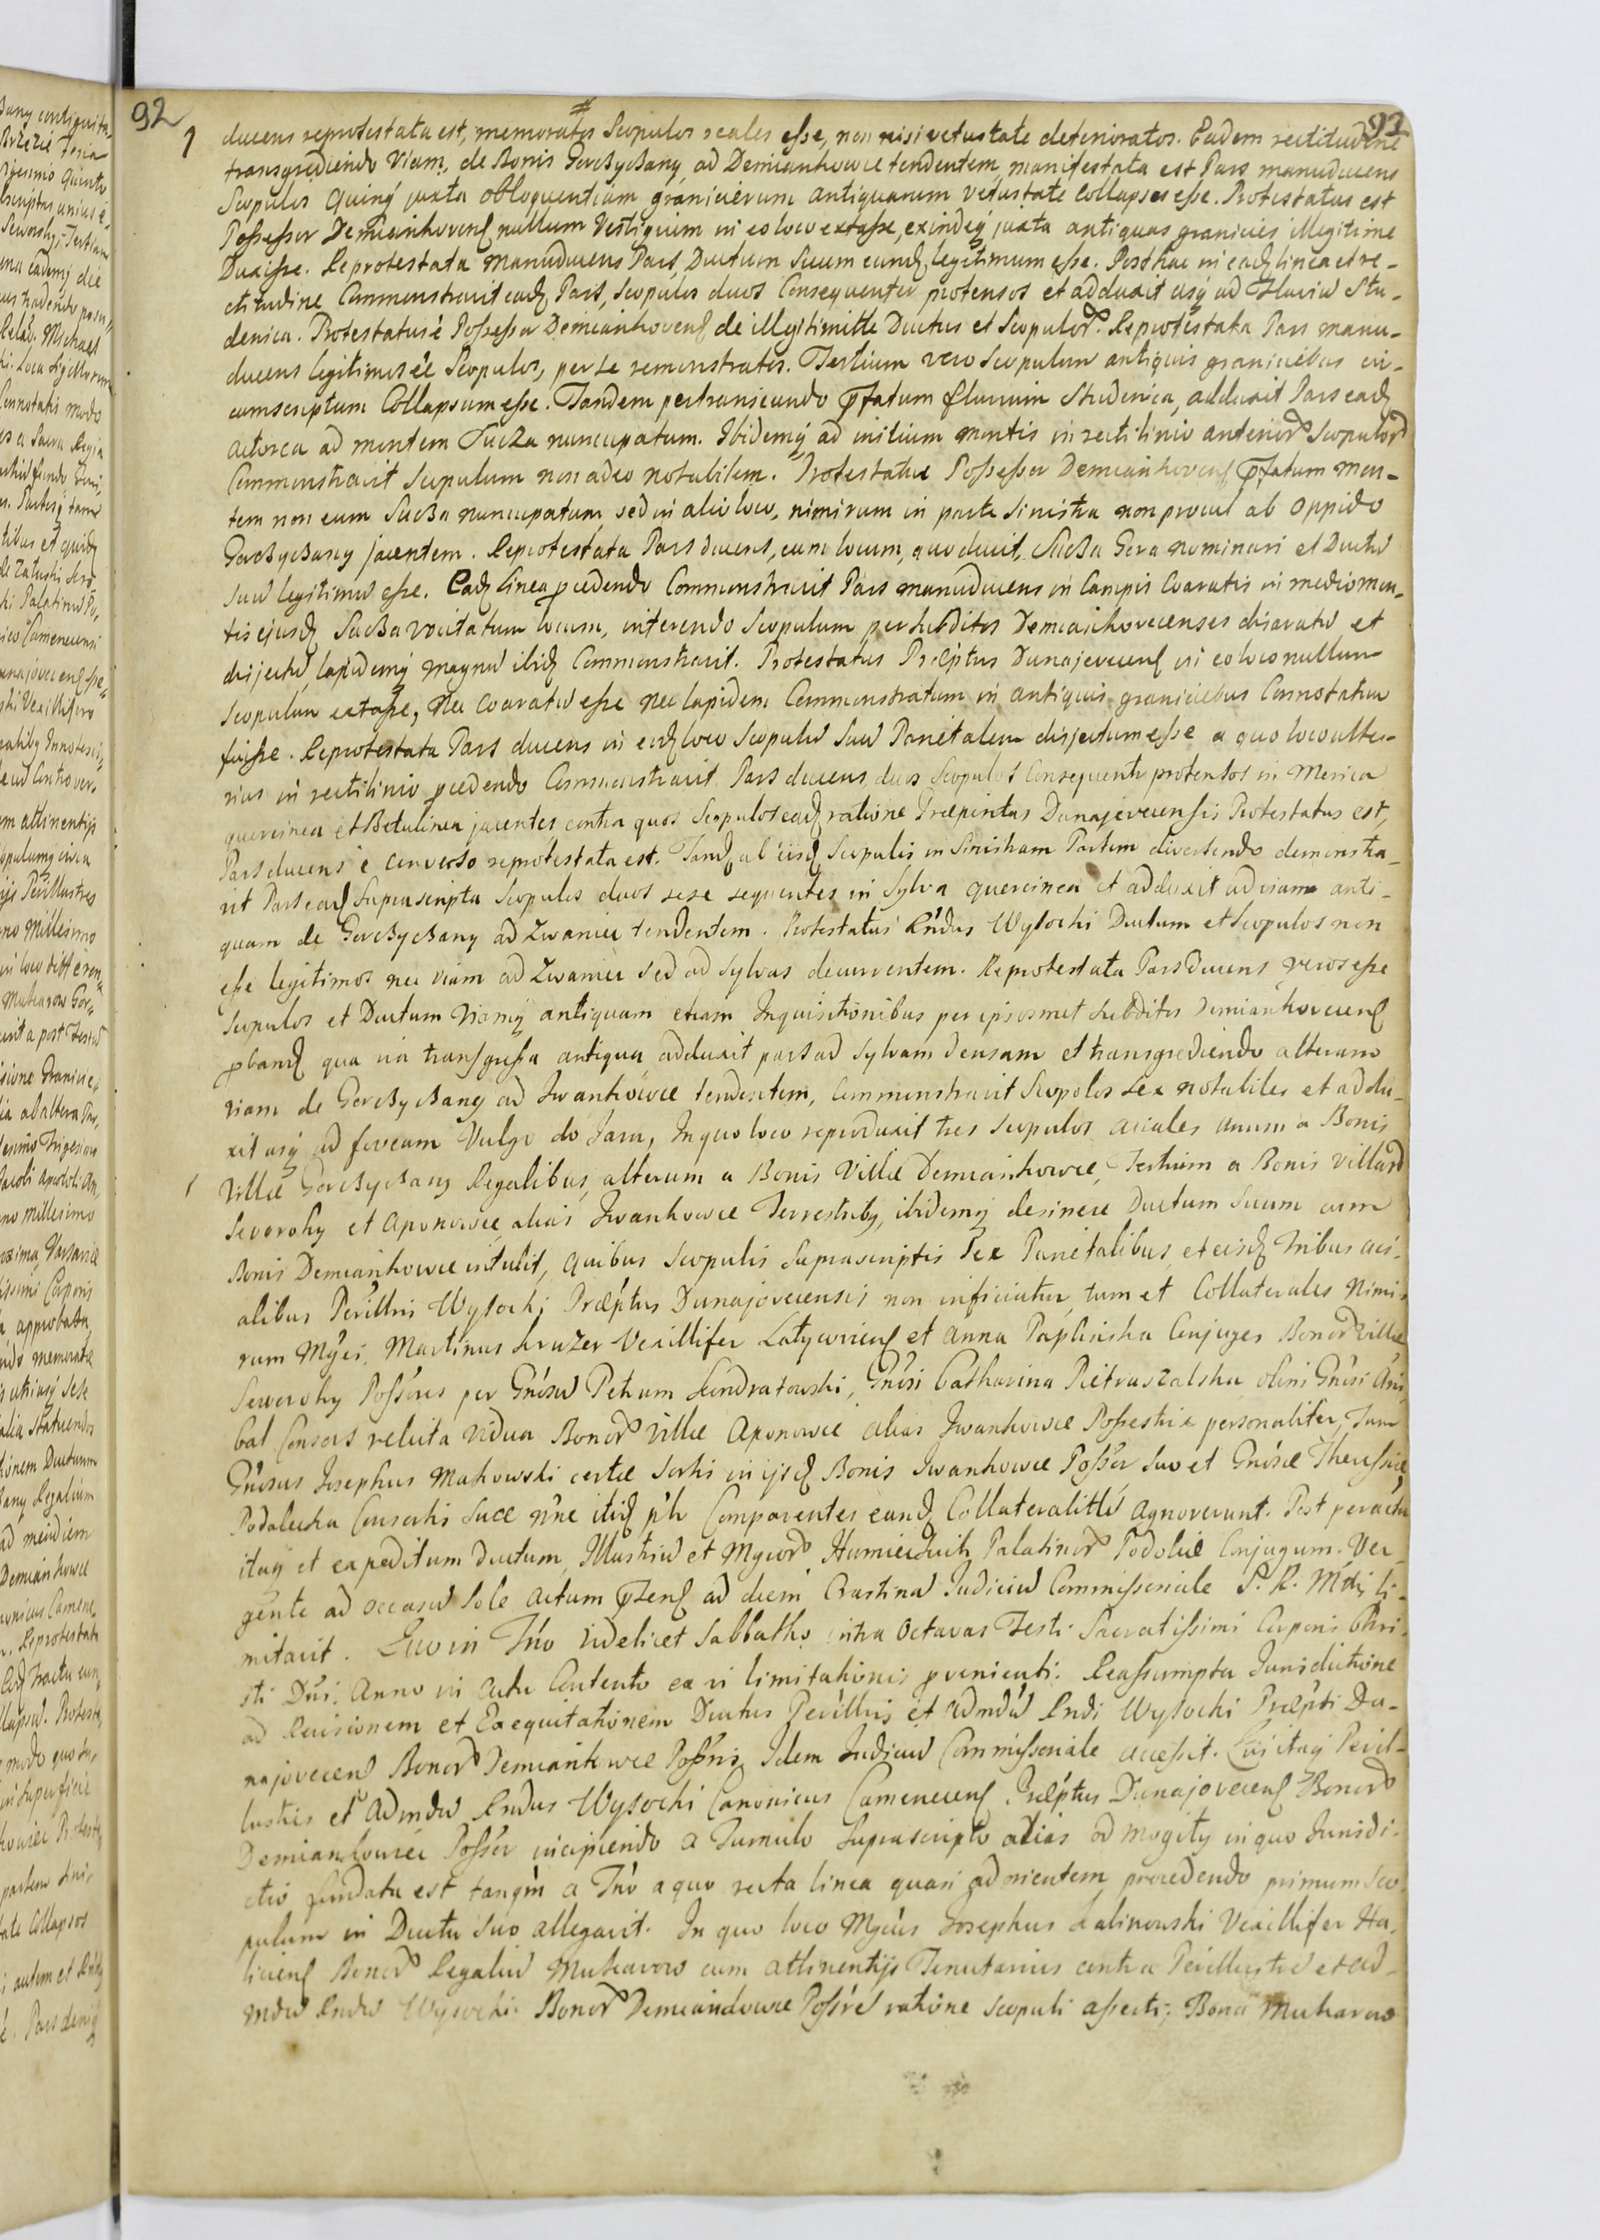 92
92
ducens reprotestata est, memoratos Scopulos reales esse, non nisi vetustate deterioratos. Eadem rectitudine
transgrediendo Viam, de Bonis GorczyCzany ad Demiankowce tendentem, manifestata est Pars manuducens
Scopulos Quinq juxta obloquentiam granicierum antiquarum vetustate Collapsos esse. Protestatus est
Possessor Demiankovens nullum Vestigium in eo loco extasse, exindeq juxta antiquas granicies illegitime
Duxisse. Reprotestata manuducens Pars, Ductum Suum eund legitimum esse. Posthac in ead linea et re-
ctitudine Commonstravit ead Pars, Scopulos duos Consequenter protensos et adduxit usq ad Fluviu Stu-
denica. Protestatus e Possessor Demiankovens de illegitimitte Ductus et Scopulor. Reprotestata Pars manu-
ducens legitimos ee Scopulos, per se remonstratos. Tertium vero Scopulum antiquis graniciebus cir-
cumscriptum Collapsum esse. Tandem pertranseundo pfatum fluvium Studenica, adduxit Pars ead
actorea ad montem SucZa nuncupatum. Ibidemq ad initium montis in rectilinio anterior Scopulor
Commonstravit Scopulum non adeo notabilem. Protestatur Possessor Demiankovens pfatum mon-
tem non eum SucZa nuncupatum, sed in alio loco, nimirum in parte Sinistra non procul ab oppido
GorczyCzany jacentem. Reprotestata Pars ducens, eum locum, quo ducit, SucZa Gora nominari et Ductu
Suu legitimu esse. Ead linea pcedendo Commonstravit Pars manuducens in Campis Coaratis in medio mon-
tis ejusd SucZa vocitatum locum, interendo Scopulum per Subditos Demiankovecenses disaratu et
disjectu, lapidemq magnu ibid Commonstravit. Protestatus Præptus Dunajevecens in eo loco nullum
Scopulum extasse, nec Coaratu esse nec lapidem Commonstratum in antiquis graniciebus Connotatum
fuisse. Reprotestata Pars ducens in eod loco Scopulu Suu Parietalem disjectum esse a quo loco ulte-
rius in rectilinio pcedendo Commonstravit Pars ducens duos Scopulos Consequenter protensos in Merica
quercinea et Betulinea jacentes contra quos Scopulos ead ratione Præpositus Dunajevecensis Protestatus est,
Pars ducens e converso reprotestata est. Tand ab iisd Scopulis in Sinistram Partem divertendo demonstra-
vit Pars ead Suprascripta Scopulos duos sese sequentes in Sylva quercinea et adduxit ad viam anti-
quam de GorczyCzany ad Zwaniec tendentem. Protestatus Rndus Wysocki Ductum et Scopulos non
esse legitimos nec viam ad Zwaniec sed ad Sylvas decurrentem. Reprotestata Pars ducens veros esse
Scopulos et Ductum Viamq antiquam etiam Inquisitionibus per ipsosmet Subditos Demiankovecens
pband qua via transgressa antiqua adduxit pars ad Sylvam densam et transgrediendo alteram
viam de GorczyCzany ad Iwankowce tendentem, Commonstravit Scopolos sex notabiles et addu-
xit usq ad foveam Vulgo do Jaru, In quo loco reproduxit tres Scopulos aciales unum a Bonis
Villæ GorczyCzany Regalibus, alterum a Bonis Villæ Demiankowce, Tertium a Bonis villar
Sevoroky et Aponowce alias Iwankowce Terrestrib, ibidemq desinere Ductum Suum cum
Bonis Demiankowce intulit, Quibus Scopulis Suprascriptis Sex Parietalibus et eisd tribus aci-
alibus Perillris Wysocki Præptus Dunajovecensis non inficiatur, tum et Collaterales Nimi-
rum Mgci Martinus KruZer Vexillifer Latyczoviens et Anna Paplinska Conjuges Bonor Villæ
Seweroky Possores per Gnosu Petrum Kondratowski, Gnosi Catharina Pietraszalska olim Gnosi Ani-
bal Consors relicta vidua Bonor Villæ Aponowce alias Iwankowce Possestrix personaliter, Tum
Gnosus Josephus Makowski certæ Sortis in ijsd Bonis Iwankowce Possor Suo et Gnosæ Theressiæ
Podolecka Consortis Suæ nne itid plr Comparentes eand Collateralitte agnoverunt. Post peractu
itaq et expeditum ductum, Illustriu et Mgcor Humiecich Palatinor Podoliæ Conjugum. Ver-
gente ad occasu Sole actum psens ad diem Crastina Judiciu Commissoriale S. R. Mttis li-
mitavit. Quo in Tno videlicet Sabbatho intra octavas Festi Sacratissimi Corporis Chri-
sti Dni. Anno in actu Contento ex vi limitationis pvenienti. Reassumpta Jurisdictione
ad Revisionem et Exequitationem Ductus Perillris et Admdu Rndi Wysocki Præpti Du-
najovecens Bonor Demiankowce Possris, Idem Judiciu Commissoriale accessit. Cui itaq Peril-
lustris et Admdu Rndus Wysocki Canonicus Camenecens Præptus Dunajovecens Bonor
Demiankowce Possor incipiendo a Tumulo Suprascripto alias od Mogiły in quo Jurisdi-
ctio fundata est tanqm a Tno a quo recta linea quasi ad orientem procedendo primum Sco-
pulum in Ductu Suo allegavit. In quo loco Mgcus Josephus Kalinowski Vexillifer Ha-
liciens Bonor Regaliu Mukarow cum attinentijs Tenutarius contra Perillustre et ad-
mdu Rndu Wysocki Bonor Demiankowce Possre ratione Scopuli asserti, Bona Mukarow